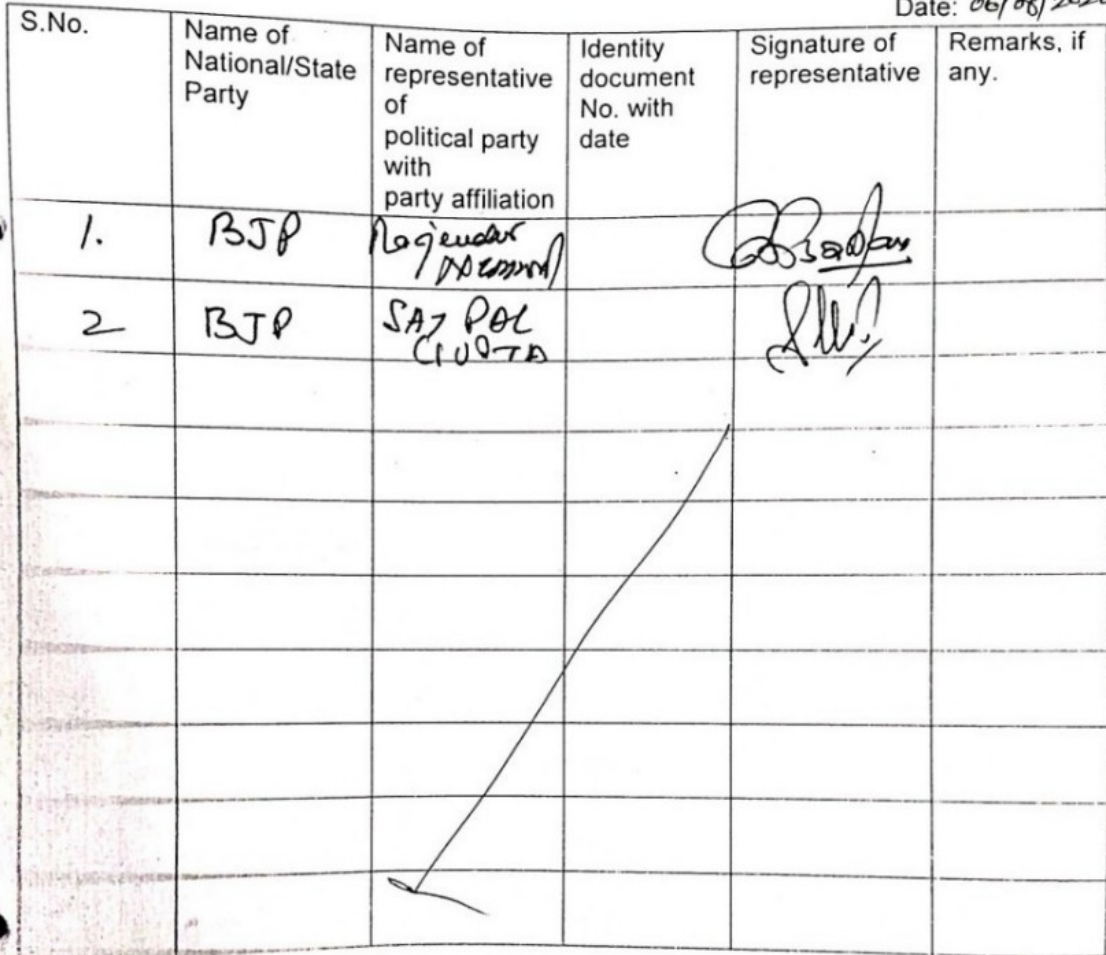 Date: 06/08/202
S.No.
Name of
National/State
Party
Name of
representative
of
political party
with
party affiliation
Identity
document
No. with
date
Signature of
representative
Remarks, if
any.
1.
BJP
Rajender
2
BJP
SAT PAL
GUPTA